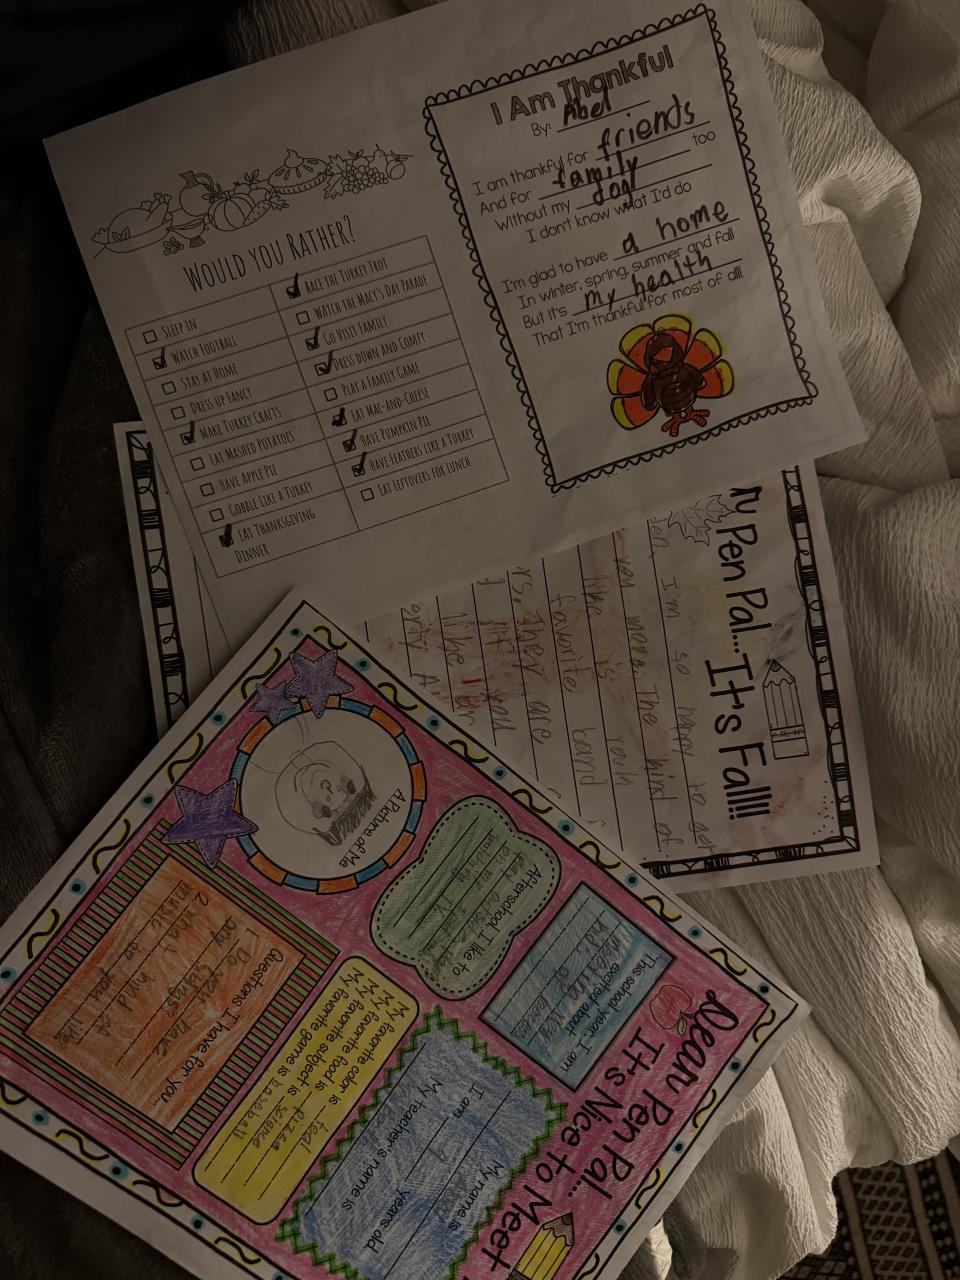 I Am Thankful
By: Abel
I am thankful for friends
And for family too
Without my dog
I don't know what I'd do
I'm glad to have a home
In winter, spring, summer and fall
But it's my health
That I'm thankful for most of all!
Would you Rather?
Sleep in
Race the Turkey Trot
Watch Football
Watch the Macy's Day Parade
Stay at Home
Go Visit Family
Dress up Fancy
Dress down and Comfy
Make Turkey Crafts
Play a Family Game
Eat Mashed Potatoes
Eat Mac-and-Cheese
Have Apple Pie
Have Pumpkin Pie
Gobble like a Turkey
Have Feathers like a Turkey
Eat Thanksgiving
Dinner
Eat Leftovers for Lunch
Pen Pal... It's Fall!!!
I'm so happy to get
you more. The kind of
like is rock
favorite band
rs. They are
if you
like
Dear Pen Pal...
It's Nice to Meet
My name is
I am 9 years old.
My teacher's name is
This school year I am
excited about
Afterschool, I like to
A Picture of Me
My favorite color is teal
My favorite food is pizza
My favorite subject is science
My favorite game is baseball
Questions I have for you...
1. Do you have
any
2. What kind of
music do you
like